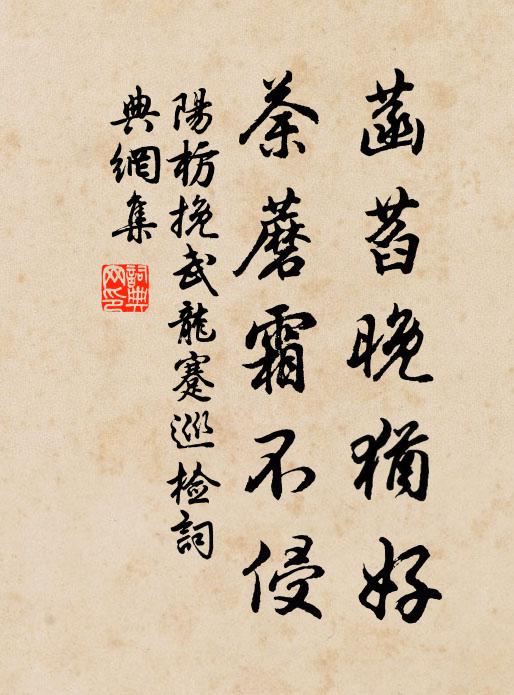 菡萏晚猶好
荼蘼霜不侵
陽枋挽武龍蹇巡檢詞
典網集
詞典網印